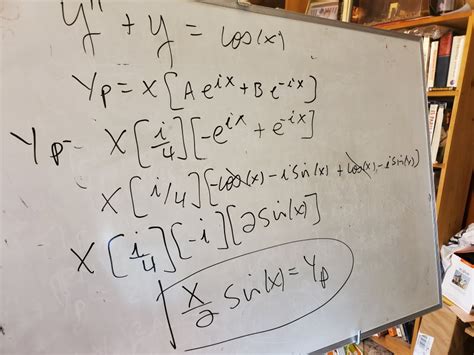 y'' + y = cos(x)
Yp = x [A e^ix + B e^-ix]
Yp = x [i/4] [-e^ix + e^-ix]
x [i/4] [-cos(x) - i sin(x) + cos(x) - i sin(x)]
x [i/4] [-i] [2 sin(x)]
x/2 sin(x) = Yp